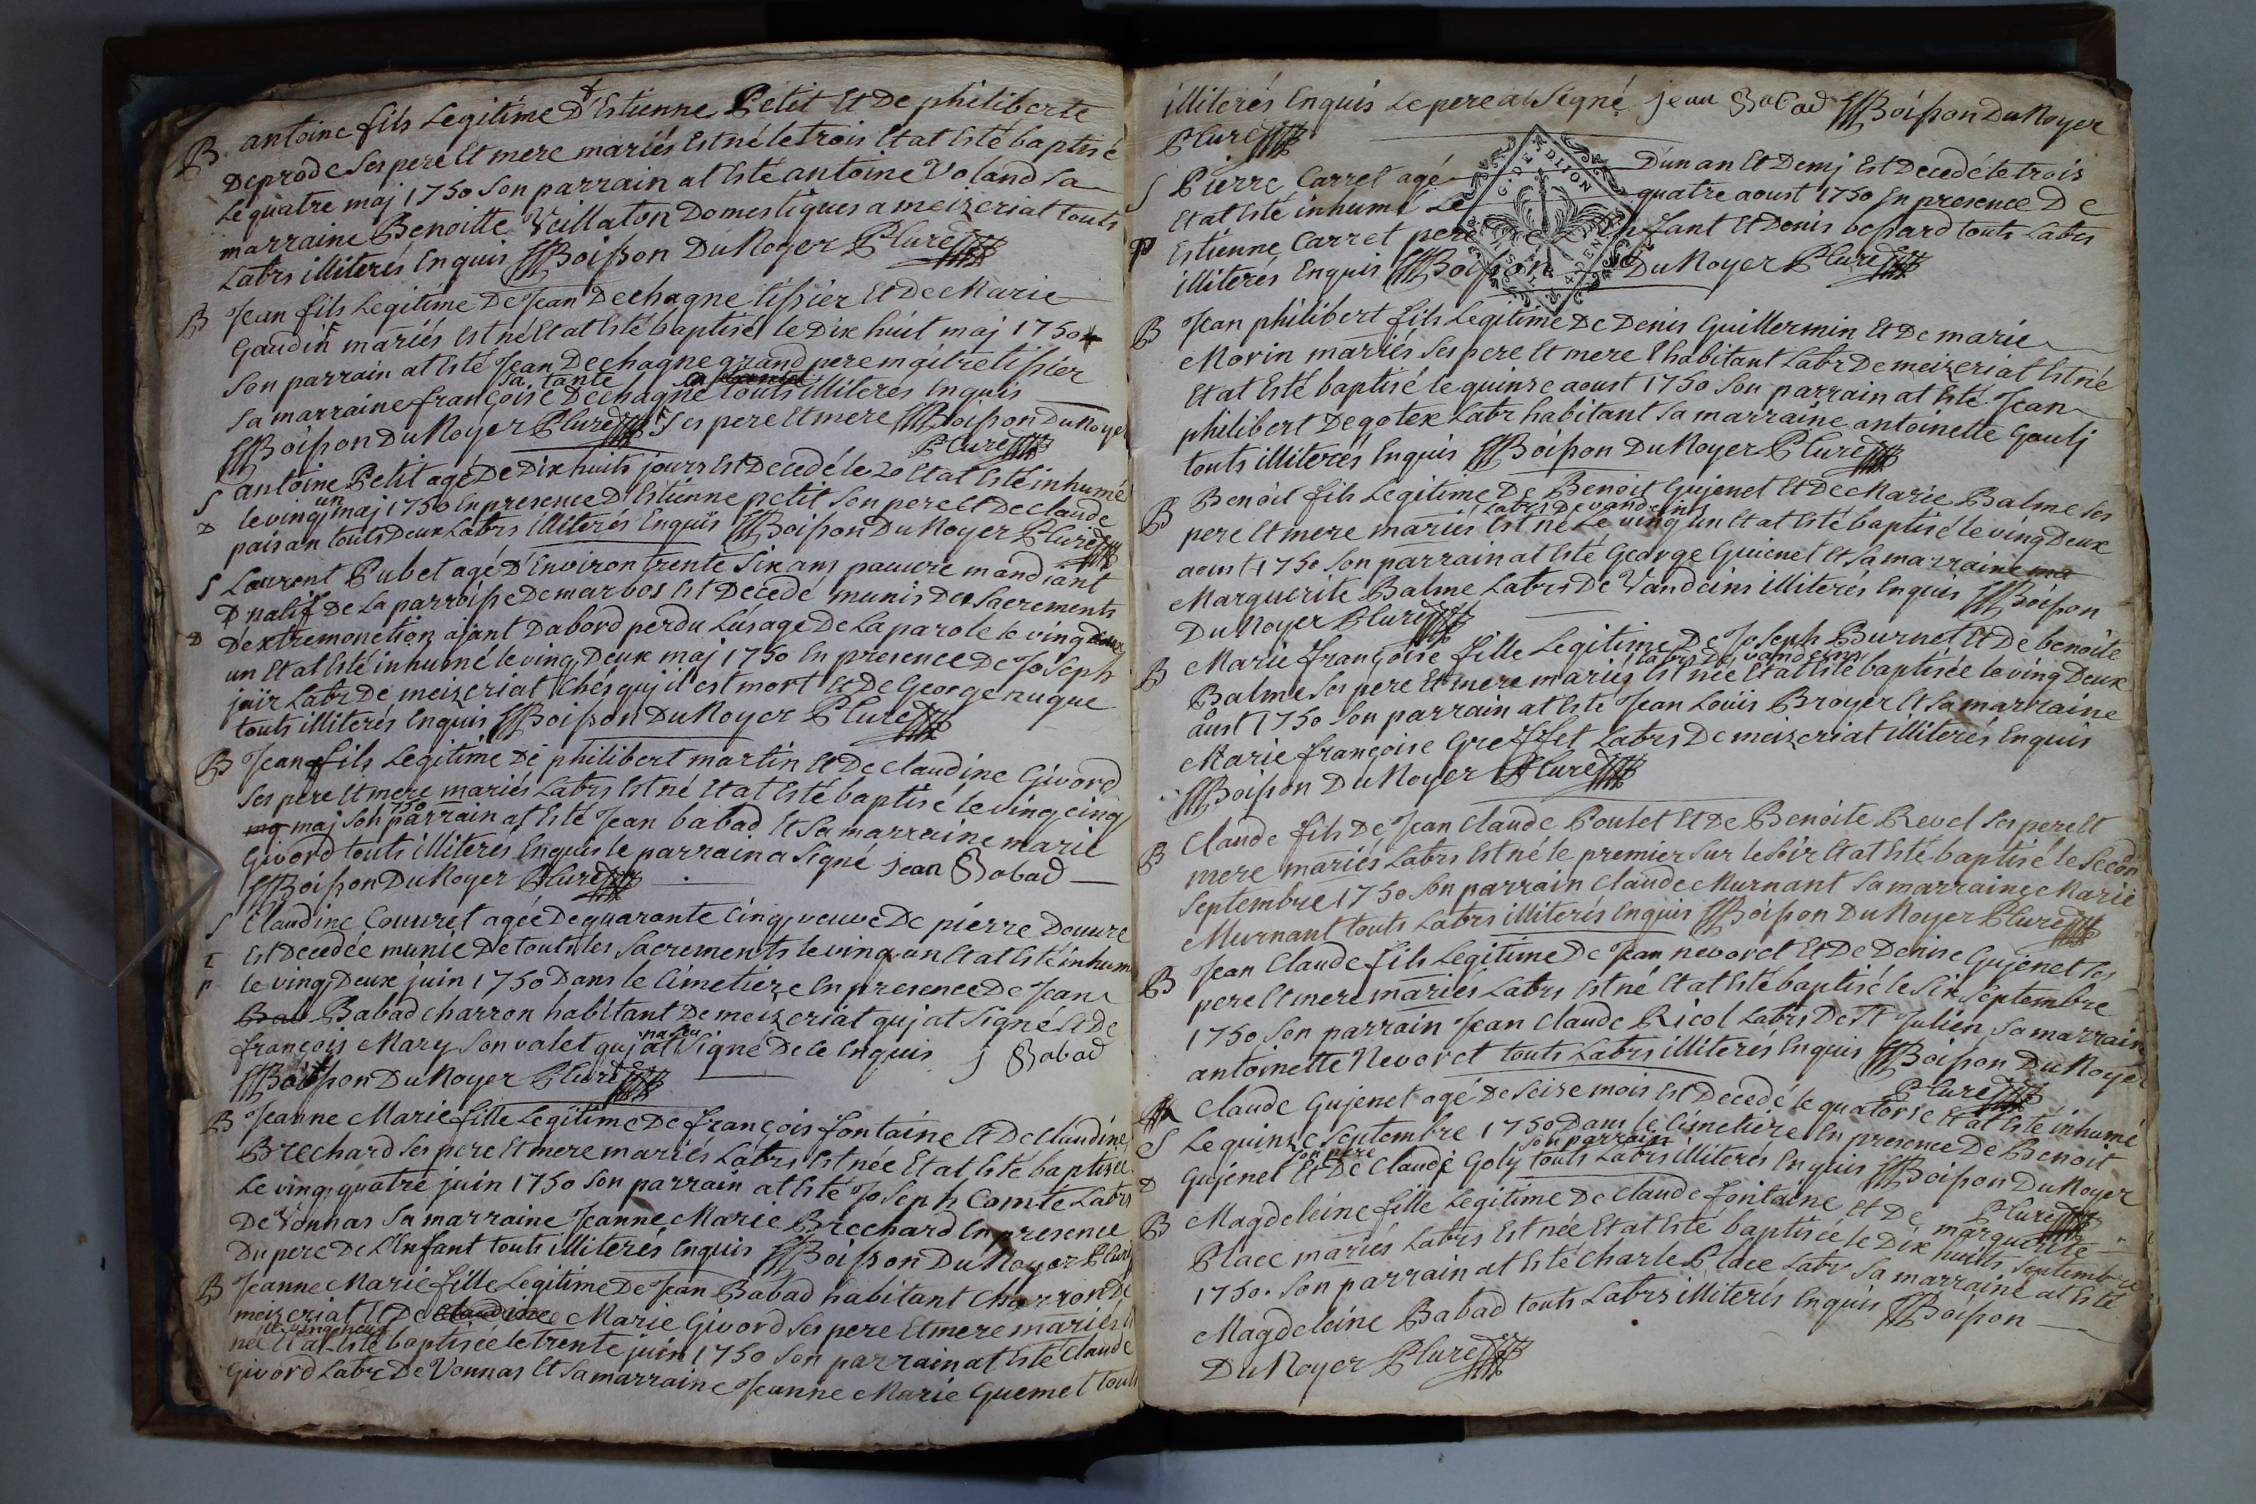 B. antoine fils Legitime D'Estienne Petit Et De philiberte
Deprode Ses pere Et mere mariés Est né le trois Et at Esté baptisé
Le quatre maj 1750 Son parrain at Esté antoine Voland Sa
marraine Benoitte Veillaton Domestiques a meizeriat touts
Labrs illiterés Enquis Boisson Du Noyer Curé
B Jean fils Legitime De Jean Dechagne tissier Et De Marie
Gaudin mariés Est né Et at Esté baptisé le Dix huit maj 1750
Son parrain at Esté Jean Dechagne grand pere maitre tissier
sa tante
Sa marraine françoise Dechagne touts illiterés Enquis
Boisson Du Noyer Curé Ses pere Et mere Boisson Du Noyer
Curé
S antoine Petit agé De Dix huits jours Est Decedé le 20 Et at Esté inhumé
un
D le ving maj 1750 En presence D'Estienne petit Son pere Et De Claude
paisan touts Deux Labrs illiterés Enquis Boisson Du Noyer Curé
S Laurent Pubet agé D'Environ trente Six ans pauvre mandiant
D natif De La parroisse De marbos Est Decedé munis Des Sacrements
D D'extremonction ajant Dabord perdu L'usage De La parole le ving
un Et at Esté inhumé le ving Deux maj 1750 En presence De Joseph
jaïr Labr De meizeriat Chés quj il est mort Et De George ruque
touts illiterés Enquis Boisson Du Noyer Curé
B Jean fils Legitime De philibert martin Et De Claudine Givord
Ses pere Et mere mariés Labrs Est né Et at Esté baptisé le ving cinq
1750
maj Son parrain at Esté Jean babad Et Sa marraine marie
Givord touts illiterés Enquis le parrain a Signé jean Babad
Boisson Du Noyer Curé
S Claudine Couvret agée De quarante Cinq veuve De pierre Douvre
E Est Decedée munie De touts les Sacrements le ving un Et at Esté inhum
p le ving Deux juin 1750 Dans le Cimetiere En presence De Jean
Bab Babad charron habitant De meizeriat quj at Signé Et De
françois Mary Son valet quj at Signé De Ce Enquis J Babad
Boisson Du Noyer Curé
B Jeanne Marie fille Legitime De françois fontaine Et De Claudine
Brechard Ses pere Et mere mariés Labrs Est née Et at Esté baptisée
Le ving quatre juin 1750 Son parrain at Esté Joseph Comte Labr
De Vonnas Sa marraine Jeanne Marie Brechard En presence
Du pere De L'Enfant touts illiterés Enquis Boisson Du Noyer Curé
B Jeanne Marie fille Legitime De Jean Babad habitant Charron De
meizeriat Et De Claudine Marie Givord Ses pere Et mere mariés
le ving neuf
née Et at Esté baptisée le trente juin 1750 Son parrain at Esté Claude
Givord Labr De Vonnas Et Sa marraine Jeanne Marie Guemet touts
illiterés Enquis Le pere at Signé jean Babad Boisson Du Noyer
Curé
S Pierre Carret agé D'un an Et Demj Est Decedé le trois
Et at Esté inhumé Le quatre aoust 1750 En presence De
p Estienne Carret pere De L'Enfant Et Denis bessard touts Labrs
illiteres Enquis Boisson Du Noyer Curé
B Jean philibert fils Legitime De Denis Guillermin Et De marie
Morin mariés Ses pere Et mere habitant Labr De meizeriat Est né
Et at Esté baptisé le quinze aoust 1750 Son parrain at Esté Jean
philibert Degotex Labr habitant Sa marraine antoinette Gaulj
touts illiterés Enquis Boisson Du Noyer Curé
B Benoit fils Legitime De Benoit Gujenet Et De Marie Balme Ses
Labrs De vandeins
pere Et mere mariés Est né Le ving un Et at Esté baptisé le ving Deux
aoust 1750 Son parrain at Esté George Guienet Et Sa marraine
Marguerite Balme Labrs De Vandeins illiterés Enquis Boisson
Du Noyer Curé
B Marie françoise fille Legitime De Joseph Burnet Et De benoite
Labrs De vandeins
Balme Ses pere Et mere mariés Est née Et at Esté baptisée le ving Deux
aust 1750 Son parrain at Esté Jean Loüis Broyer Et Sa marraine
Marie françoise Greffet Labrs De meizeriat illiterés Enquis
Boisson Du Noyer Curé
B Claude fils De Jean Claude Poulet Et De Benoite Revel Ses pere Et
mere mariés Labrs Est né le premier Sur le Soir Et at Esté baptisé le Second
Septembre 1750 Son parrain Claude Murnant Sa marraine Marie
Murnant touts Labrs illiterés Enquis Boisson Du Noyer Curé
B Jean Claude fils Legitime De Jean nevoret Et De Denise Gujenet Ses
pere Et mere mariés Labrs Est né Et at Esté baptisé le Six Septembre
1750 Son parrain Jean Claude Ricol Labrs De St Julien Sa marraine
antoinette Nevoret touts Labrs illiterés Enquis Boisson Du Noyer
Curé
Claude Gujenet agé De Seise mois Est Decedé le quatorse Et at Esté inhumé
S Le quinze Septembre 1750 Dans le Cimetiere En presence De Benoit
son pere son parrain
D Gujenet Et De Claude Goly touts Labrs illiterés Enquis Boisson Du Noyer
Curé
B Magdeleine fille Legitime De Claude fontaine Et De marguerite
Place mariés Labrs Est née Et at Esté baptisée le Dix huits Septembre
1750. Son parrain at Esté Charle Place Labr Sa marraine at Esté
Magdeleine Babad touts Labrs illiterés Enquis Boisson
Du Noyer Curé